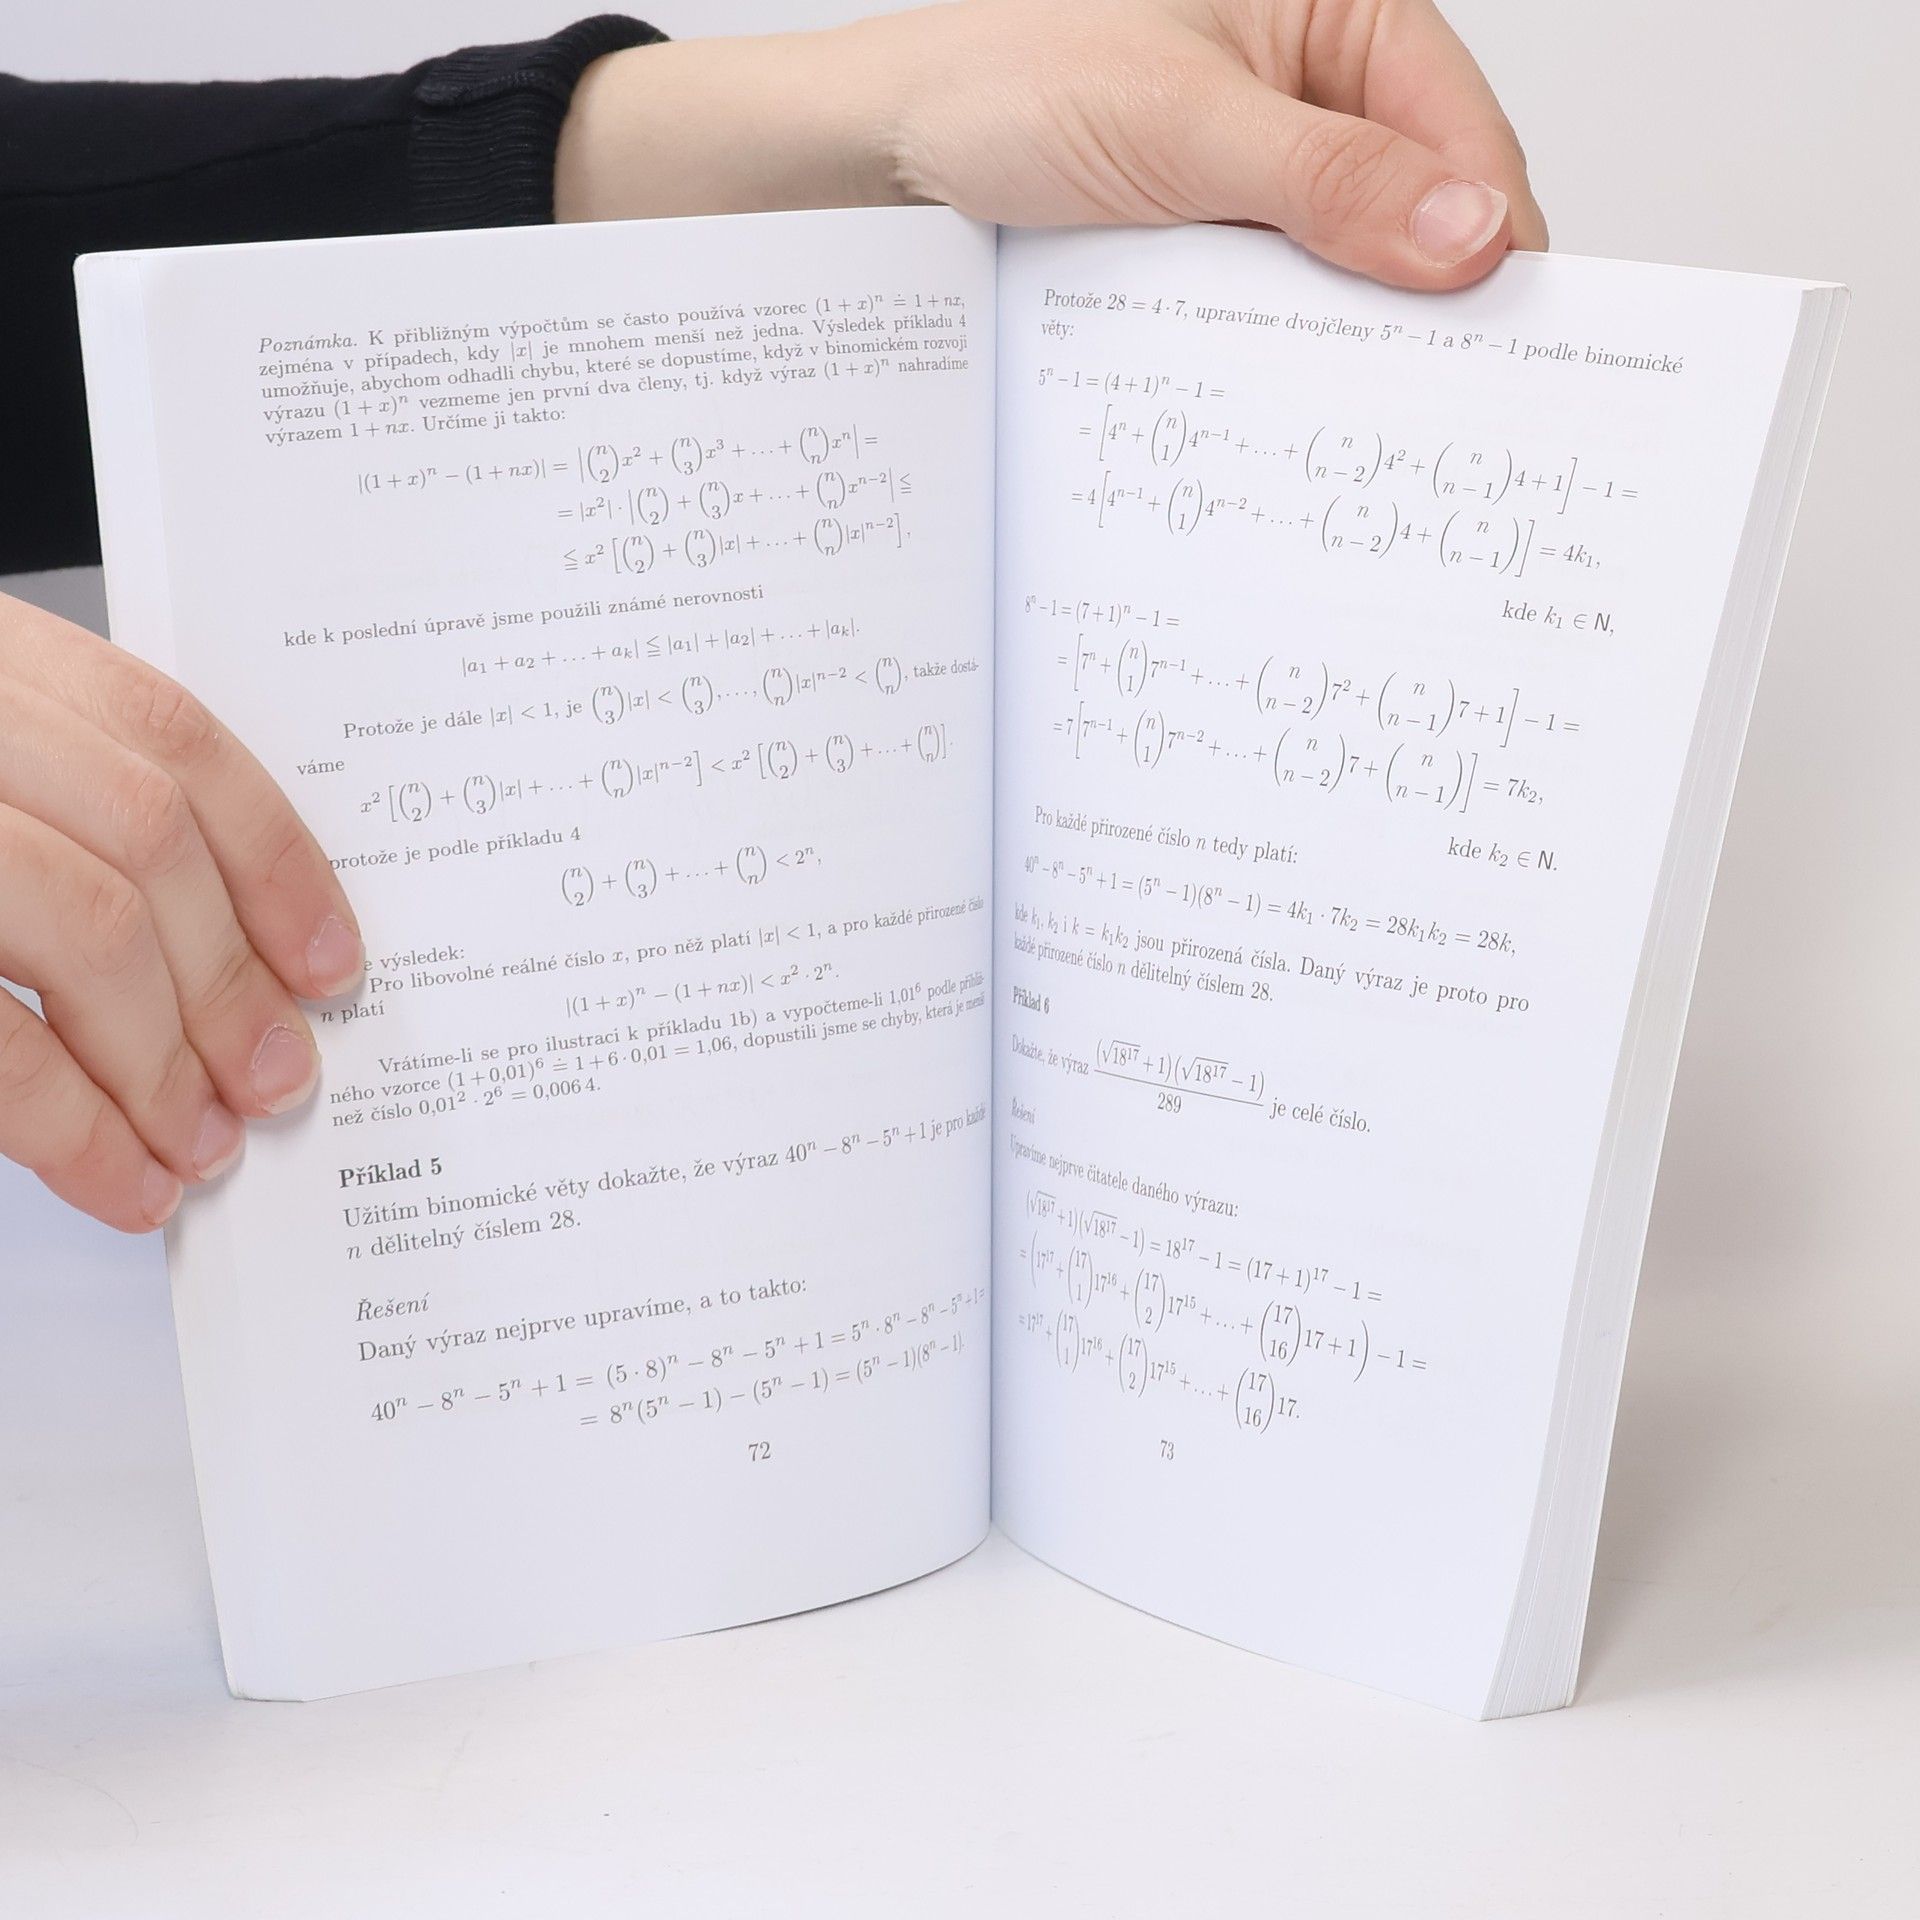 Poznámka. K přibližným výpočtům se často používá vzorec (1 + x)ⁿ ≐ 1 + nx,
zejména v případech, kdy |x| je mnohem menší než jedna. Výsledek příkladu 4
umožňuje, abychom odhadli chybu, které se dopustíme, když v binomickém rozvoji
výrazu (1 + x)ⁿ vezmeme jen první dva členy, tj. když výraz (1 + x)ⁿ nahradíme
výrazem 1 + nx. Určíme ji takto:
|(1 + x)ⁿ − (1 + nx)| = |(n 2)x² + (n 3)x³ + … + (n n)xⁿ| =
= |x²| · |(n 2) + (n 3)x + … + (n n)xⁿ⁻²| ≦
≦ x² [(n 2) + (n 3)|x| + … + (n n)|x|ⁿ⁻²],
kde k poslední úpravě jsme použili známé nerovnosti
|a₁ + a₂ + … + aₖ| ≦ |a₁| + |a₂| + … + |aₖ|.
Protože je dále |x| < 1, je (n 3)|x| < (n 3), …, (n n)|x|ⁿ⁻² < (n n), takže dostá-
váme
x² [(n 2) + (n 3)|x| + … + (n n)|x|ⁿ⁻²] < x² [(n 2) + (n 3) + … + (n n)].
protože je podle příkladu 4
(n 2) + (n 3) + … + (n n) < 2ⁿ,
výsledek:
Pro libovolné reálné číslo x, pro něž platí |x| < 1, a pro každé přirozené číslo
n platí
|(1 + x)ⁿ − (1 + nx)| < x² · 2ⁿ.
Vrátíme-li se pro ilustraci k příkladu 1b) a vypočteme-li 1,01⁶ podle přibliž-
ného vzorce (1 + 0,01)⁶ ≐ 1 + 6 · 0,01 = 1,06, dopustili jsme se chyby, která je menší
než číslo 0,01² · 2⁶ = 0,006 4.
Příklad 5
Užitím binomické věty dokažte, že výraz 40ⁿ − 8ⁿ − 5ⁿ + 1 je pro každé
n dělitelný číslem 28.
Řešení
Daný výraz nejprve upravíme, a to takto:
40ⁿ − 8ⁿ − 5ⁿ + 1 = (5 · 8)ⁿ − 8ⁿ − 5ⁿ + 1 = 5ⁿ · 8ⁿ − 8ⁿ − 5ⁿ + 1 =
= 8ⁿ(5ⁿ − 1) − (5ⁿ − 1) = (5ⁿ − 1)(8ⁿ − 1).
72
Protože 28 = 4 · 7, upravíme dvojčleny 5ⁿ − 1 a 8ⁿ − 1 podle binomické
věty:
5ⁿ − 1 = (4 + 1)ⁿ − 1 =
= [4ⁿ + (n 1)4ⁿ⁻¹ + … + (n n − 2)4² + (n n − 1)4 + 1] − 1 =
= 4[4ⁿ⁻¹ + (n 1)4ⁿ⁻² + … + (n n − 2)4 + (n n − 1)] = 4k₁,
kde k₁ ∈ N,
8ⁿ − 1 = (7 + 1)ⁿ − 1 =
= [7ⁿ + (n 1)7ⁿ⁻¹ + … + (n n − 2)7² + (n n − 1)7 + 1] − 1 =
= 7[7ⁿ⁻¹ + (n 1)7ⁿ⁻² + … + (n n − 2)7 + (n n − 1)] = 7k₂,
kde k₂ ∈ N.
Pro každé přirozené číslo n tedy platí:
40ⁿ − 8ⁿ − 5ⁿ + 1 = (5ⁿ − 1)(8ⁿ − 1) = 4k₁ · 7k₂ = 28k₁k₂ = 28k,
kde k₁, k₂ i k = k₁k₂ jsou přirozená čísla. Daný výraz je proto pro
každé přirozené číslo n dělitelný číslem 28.
Příklad 6
Dokažte, že výraz (√18¹⁷ + 1)(√18¹⁷ − 1) / 289 je celé číslo.
Řešení
Upravíme nejprve čitatele daného výrazu:
(√18¹⁷ + 1)(√18¹⁷ − 1) = 18¹⁷ − 1 = (17 + 1)¹⁷ − 1 =
= (17¹⁷ + (17 1)17¹⁶ + (17 2)17¹⁵ + … + (17 16)17 + 1) − 1 =
= 17¹⁷ + (17 1)17¹⁶ + (17 2)17¹⁵ + … + (17 16)17.
73